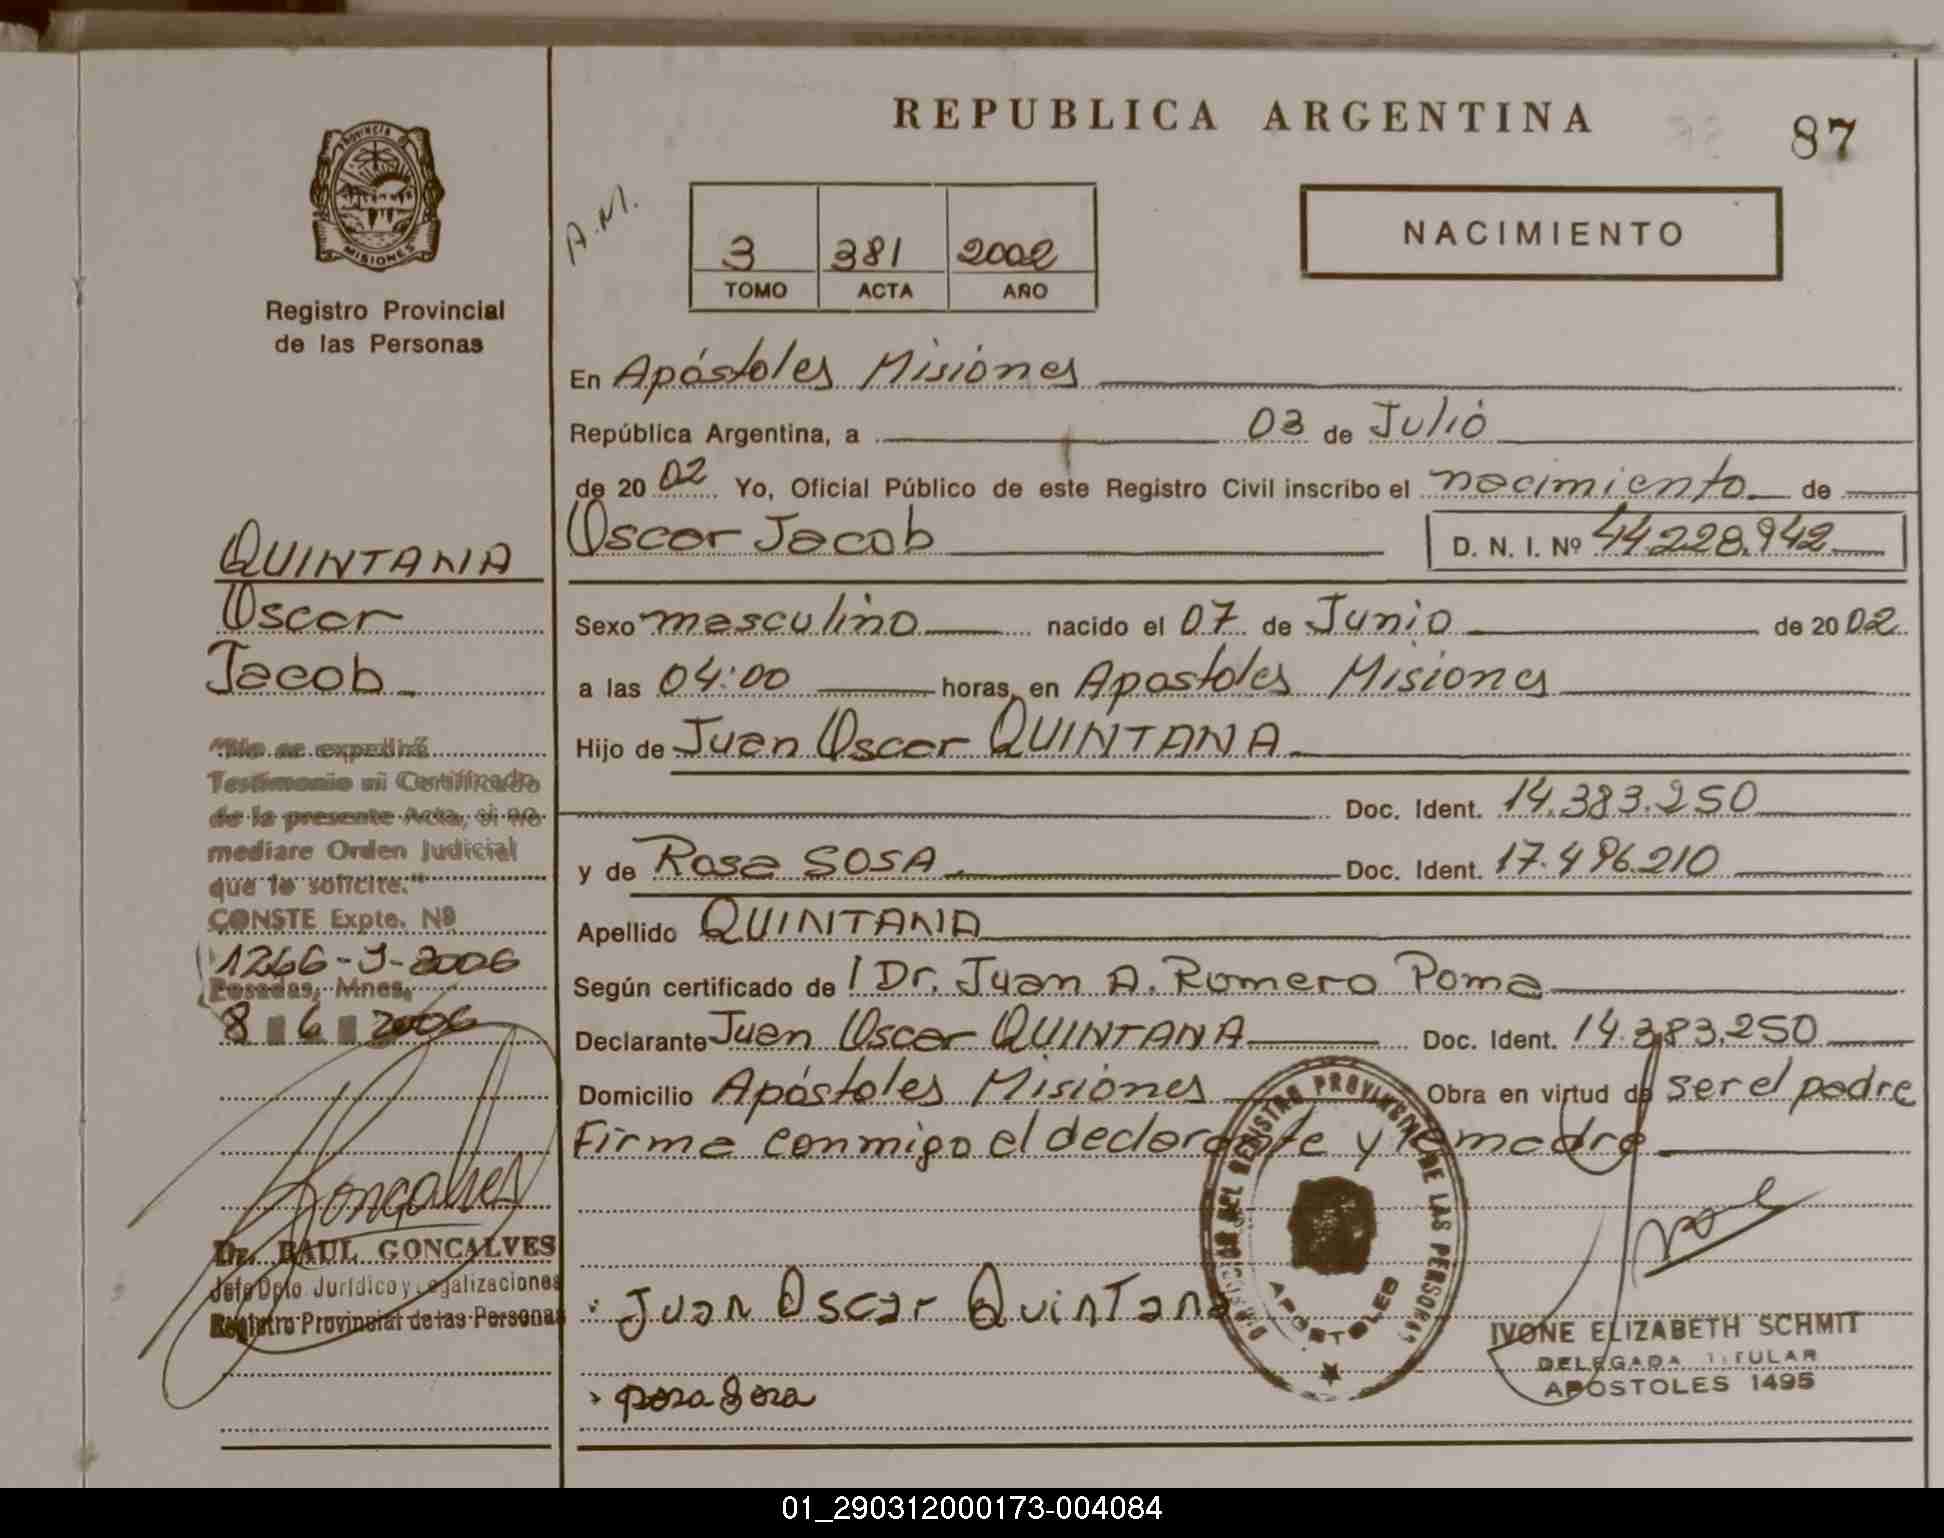 REPUBLICA ARGENTINA
87
PROVINCIA
MISIONES
Registro Provincial
de las Personas
A.M.
3 381 2002
TOMO ACTA AÑO
NACIMIENTO
En Apóstoles Misiones
República Argentina, a 03 de Julio
de 20 02 Yo, Oficial Público de este Registro Civil inscribo el nacimiento de
Oscar Jacob D. N. I. Nº 44.228.942
Sexo masculino nacido el 07 de Junio de 20 02
a las 04:00 horas, en Apostoles Misiones
Hijo de Juan Oscar QUINTANA
Doc. Ident. 14.383.250
y de Rosa SOSA Doc. Ident. 17.496.210
Apellido QUINTANA
Según certificado de Dr. Juan A. Romero Poma
Declarante Juan Oscar QUINTANA Doc. Ident. 14.383.250
Domicilio Apóstoles Misiones Obra en virtud de ser el padre
Firma conmigo el declarante y la madre
Juan Oscar Quintana
IVONE ELIZABETH SCHMIT
DELEGADA TITULAR
APOSTOLES 1495
DEL REGISTRO PROVINCIAL DE LAS PERSONAS
APOSTOLES
QUINTANA
Oscar
Jacob
"No se expedirá
Testimonio ni Certificado
de la presente Acta, si no
mediare Orden Judicial
que lo solicite."
CONSTE Expte. Nº
1266-J-2006
Posadas, Mnes,
8 6 2006
Goncalves
Dr. RAUL GONCALVES
Jefe Dpto Jurídico y Legalizaciones
Registro Provincial de las Personas
01_290312000173-004084